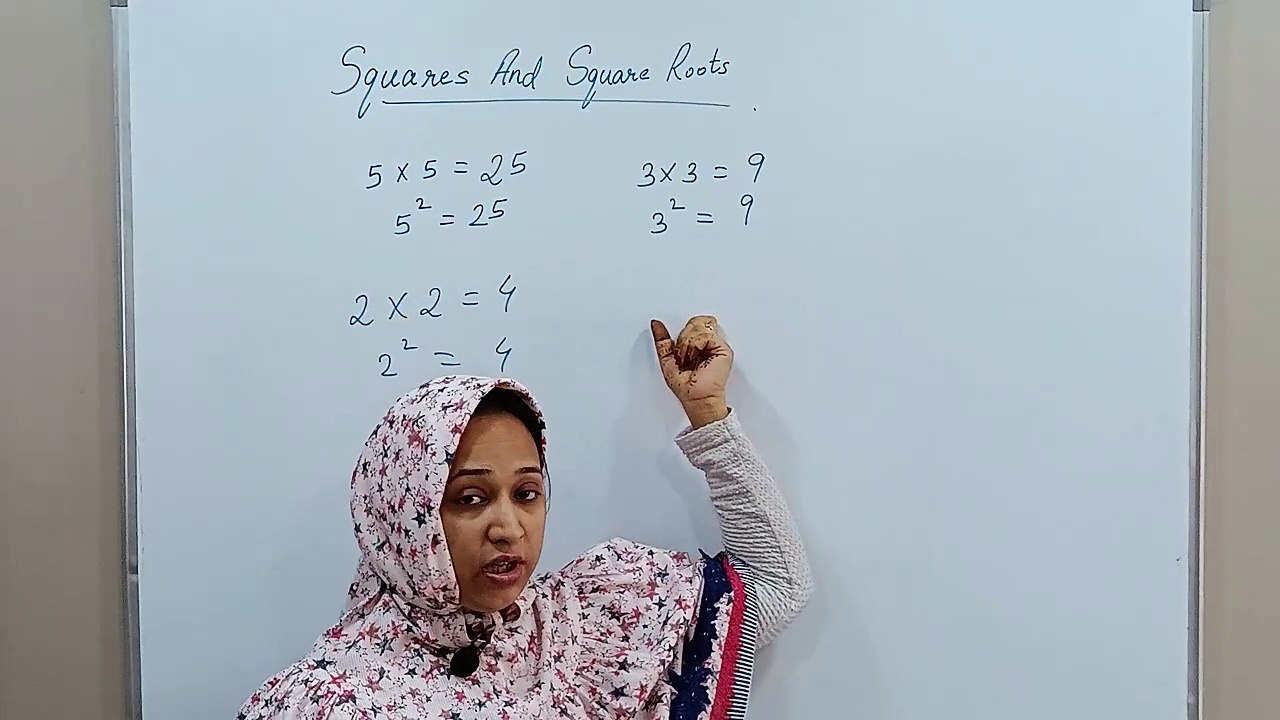 Squares And Square Roots
5 × 5 = 25
5² = 25
3 × 3 = 9
3² = 9
2 × 2 = 4
2² = 4